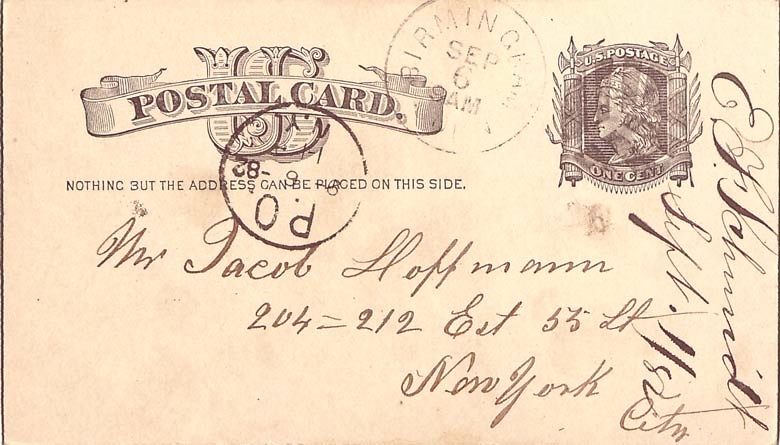 BIRMINGHAM
SEP
6
AM
US
POSTAL CARD.
U.S. POSTAGE
ONE CENT
N.Y.
82
P.O.
NOTHING BUT THE ADDRESS CAN BE PLACED ON THIS SIDE.
Mr Jacob Hoffmann
204=212 Est 55 St
New York
City
Schmidt
Sept.